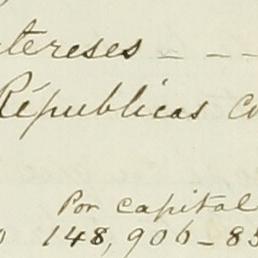 ntereses - - -
Républicas co
Por capital
0 148,906-85